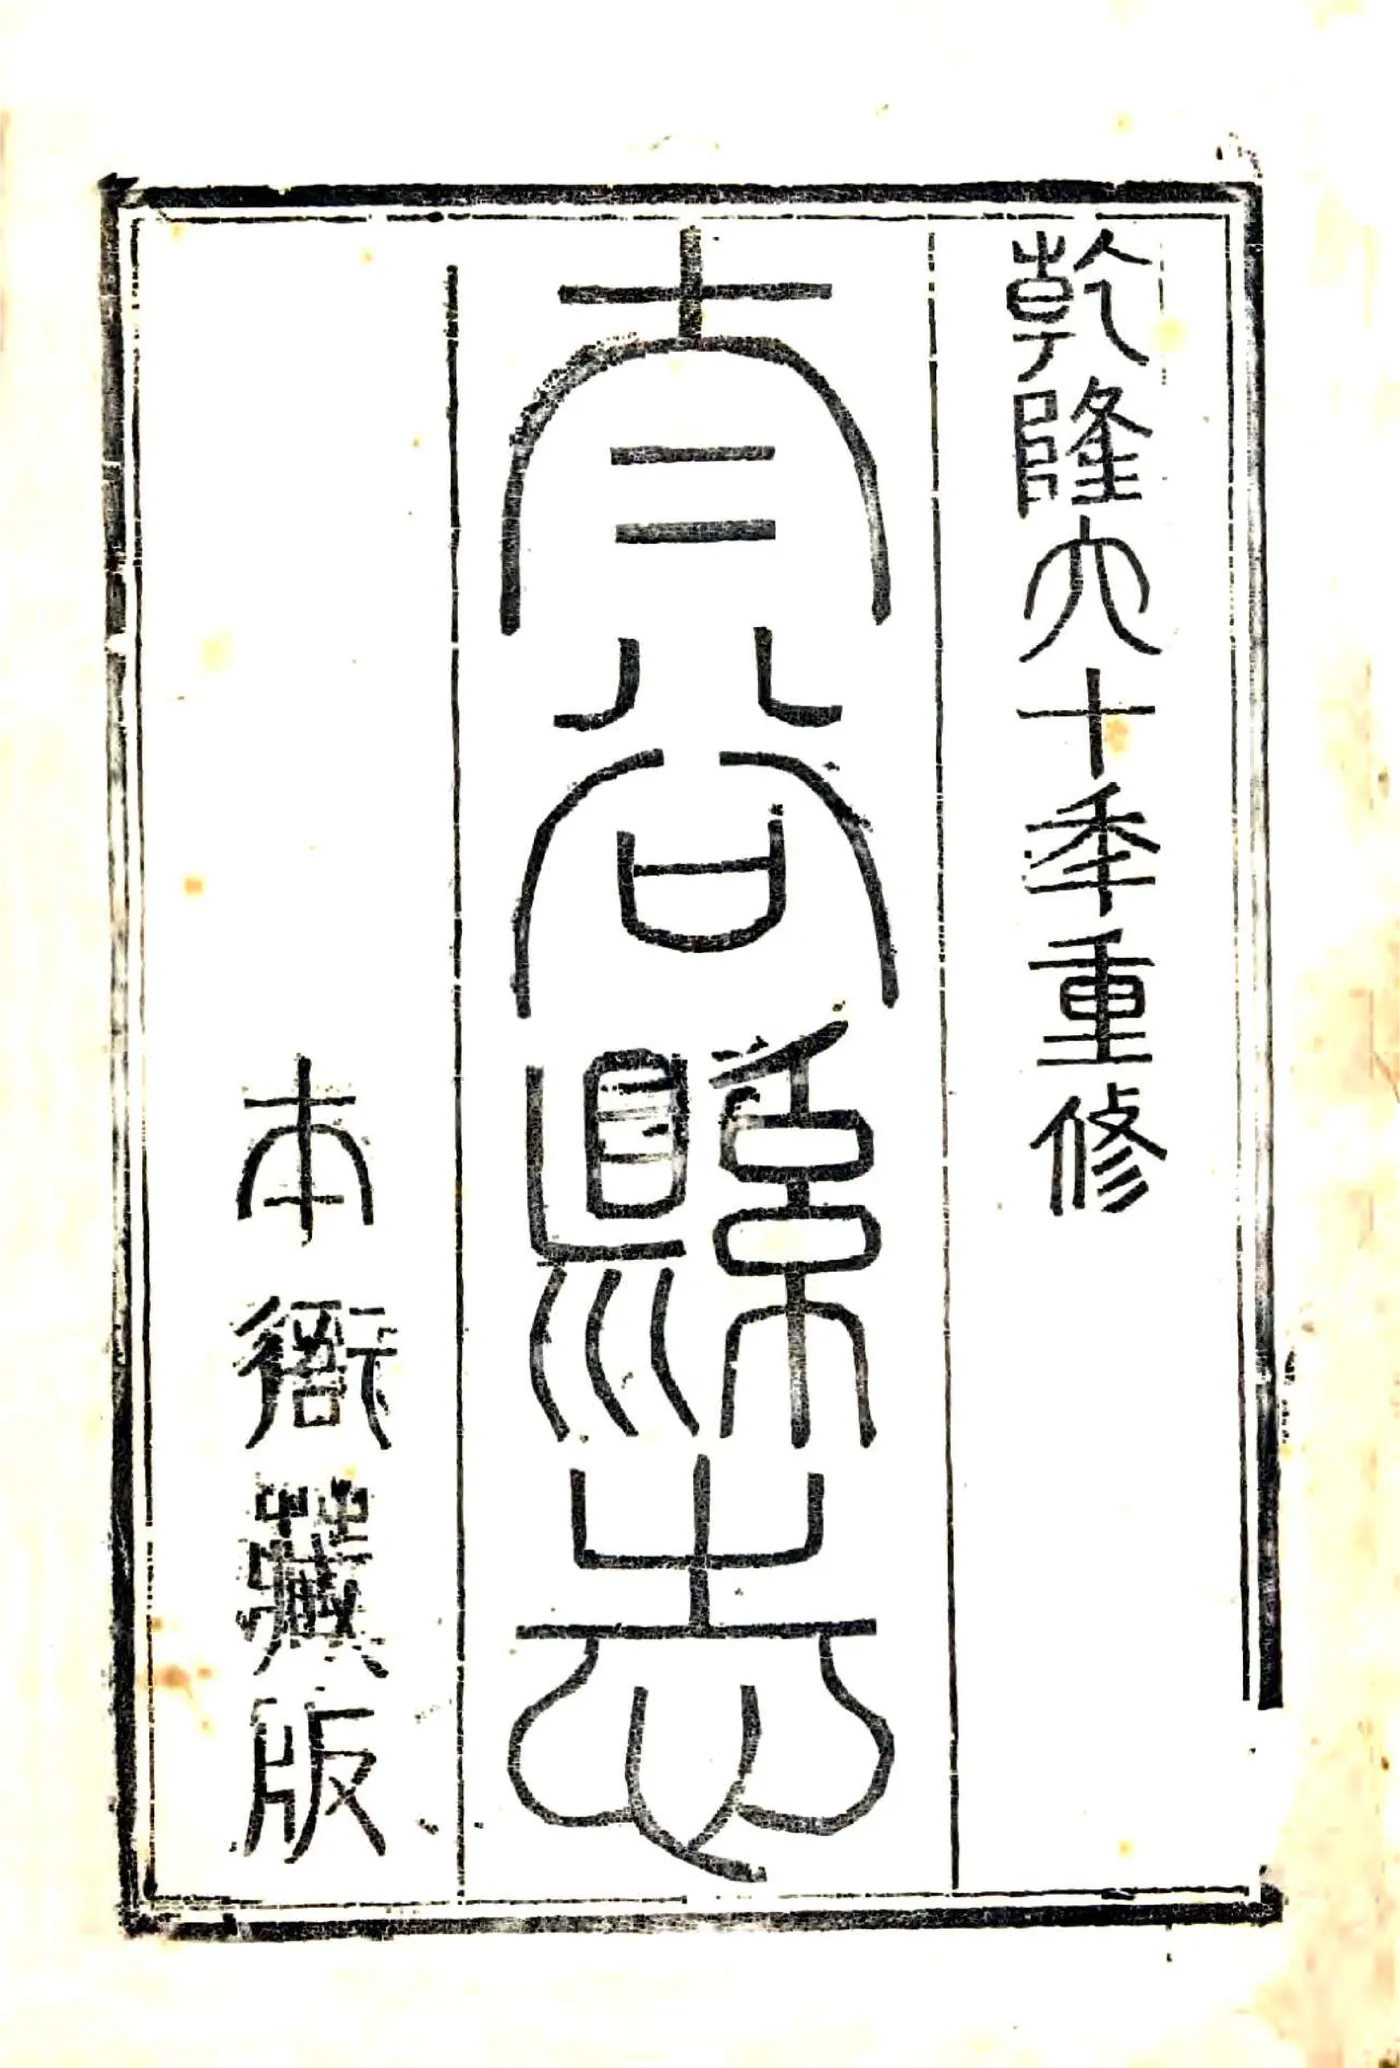 乾隆六十秊重修
太谷縣志
本衙藏版